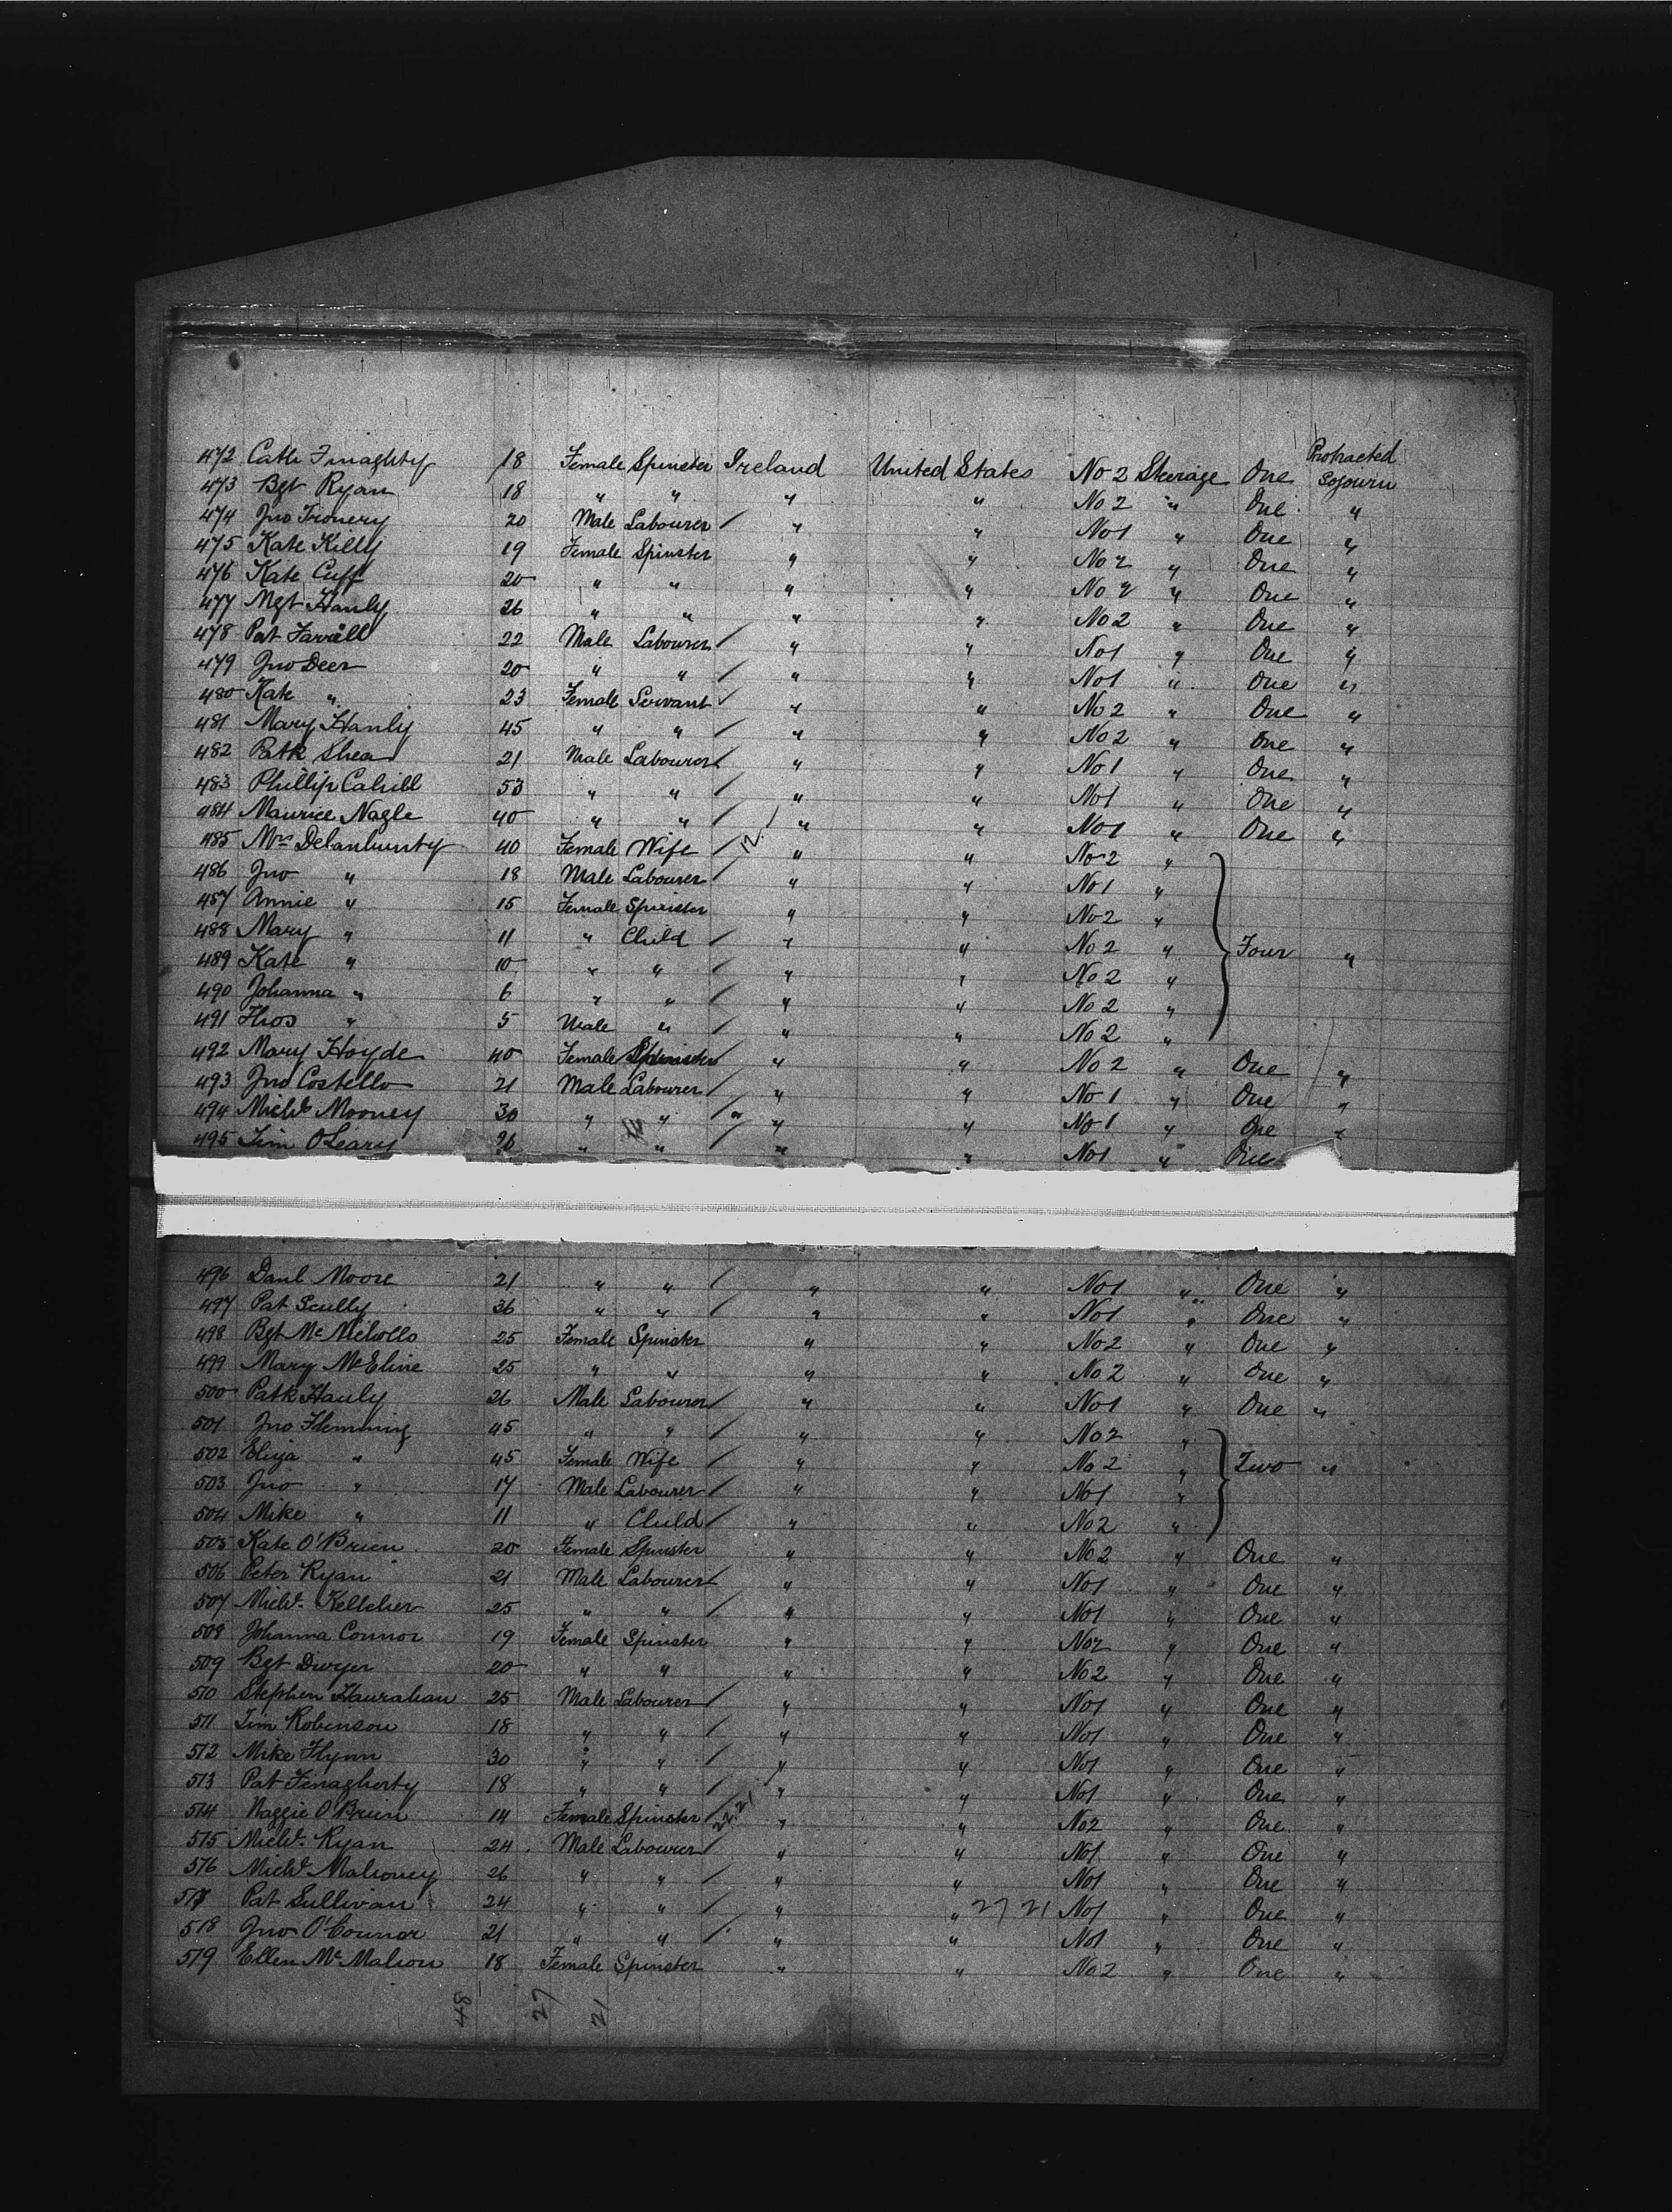 472 Cath Finaghty 18 Female Spinster Ireland United States No 2 Steerage One Protracted Sojourn
473 Bgt Ryan 18 " " " " No 2 " One "
474 Jno Tronery 20 Male Labourer / " " No 1 " One "
475 Kate Killy 19 Female Spinster " " No 2 " One "
476 Kate Cuff 20 " " " " No 2 " One "
477 Mgt Hanly 26 " " " " No 2 " One "
478 Pat Farrell 22 Male Labourer / " " No 1 " One "
479 Jno Deer 20 " " / " " No 1 " One "
480 Kate " 23 Female Servant / " " No 2 " One "
481 Mary Hanly 45 " " / " " No 2 " One "
482 Patk Shea 21 Male Labourer / " " No 1 " One "
483 Phillip Cahill 53 " " / " " No 1 " One "
484 Maurice Nagle 40 " " / " " No 1 " One "
485 Mrs Delanhunty 40 Female Wife / 12 " " No 2 "
486 Jno " 18 Male Labourer / " " No 1 "
457 Annie " 15 Female Spinster " " No 2 "
488 Mary " 11 " Child / " " No 2 " Four "
489 Kate " 10 " " / " " No 2 "
490 Johanna " 6 " " / " " No 2 "
491 Thos " 5 Male " / " " No 2 "
492 Mary Hoyde 40 Female Spinster / " " No 2 " One "
493 Jno Costello 21 Male Labourer / " " No 1 " One "
494 Michl Mooney 30 " " / " " No 1 " One "
495 Tim O'Leary 20 " " / " " No 1 " One
496 Danl Moore 21 " " / " " No 1 " One "
497 Pat Scully 36 " " / " " No 1 " One "
498 Bgt McNicholls 25 Female Spinster " " No 2 " One "
499 Mary McEline 25 " " " " No 2 " One "
500 Patk Hanly 26 Male Labourer / " " No 1 " One "
501 Jno Flemming 45 " " / " " No 2 "
502 Eliza " 45 Female Wife / " " No 2 " Two "
503 Jno " 17 Male Labourer / " " No 1 "
504 Mike " 11 " Child / " " No 2 "
505 Kate O'Brien 20 Female Spinster " " No 2 " One "
506 Peter Ryan 21 Male Labourer / " " No 1 " One "
507 Michl. Kelleher 25 " " / " " No 1 " One "
508 Johanna Connor 19 Female Spinster " " No 2 " One "
509 Bgt Dwyer 20 " " " " No 2 " One "
510 Stephen Hanrahan 25 Male Labourer / " " No 1 " One "
511 Tim Robinson 18 " " / " " No 1 " One "
512 Mike Flynn 30 " " / " " No 1 " One "
513 Pat Finagherty 18 " " / " " No 1 " One "
514 Maggie O'Brien 14 Female Spinster / 22.21 " " No 2 " One "
515 Michl. Ryan 24 Male Labourer / " " No 1 " One "
516 Michl Mahoney 26 " " / " " No 1 " One "
517 Pat Sullivan 24 " " / " " 27 21 No 1 " One "
518 Jno O'Connor 21 " " / " " No 1 " One "
519 Ellen McMahon 18 Female Spinster " " No 2 " One "
48 27 21